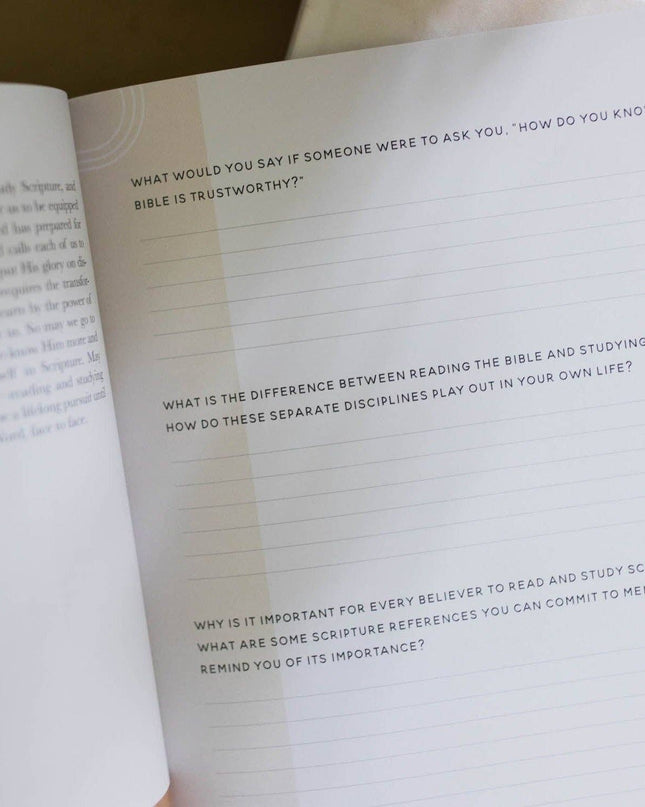 Scripture, and
us to be equipped
has prepared for
calls each of us to
His glory on dis-
requires the transfor-
by the power of
us. So may we go to
know Him more and
in Scripture. May
reading and studying
a lifelong pursuit until
face to face.
WHAT WOULD YOU SAY IF SOMEONE WERE TO ASK YOU, "HOW DO YOU KNO
BIBLE IS TRUSTWORTHY?"
WHAT IS THE DIFFERENCE BETWEEN READING THE BIBLE AND STUDYING
HOW DO THESE SEPARATE DISCIPLINES PLAY OUT IN YOUR OWN LIFE?
WHY IS IT IMPORTANT FOR EVERY BELIEVER TO READ AND STUDY SC
WHAT ARE SOME SCRIPTURE REFERENCES YOU CAN COMMIT TO ME
REMIND YOU OF ITS IMPORTANCE?